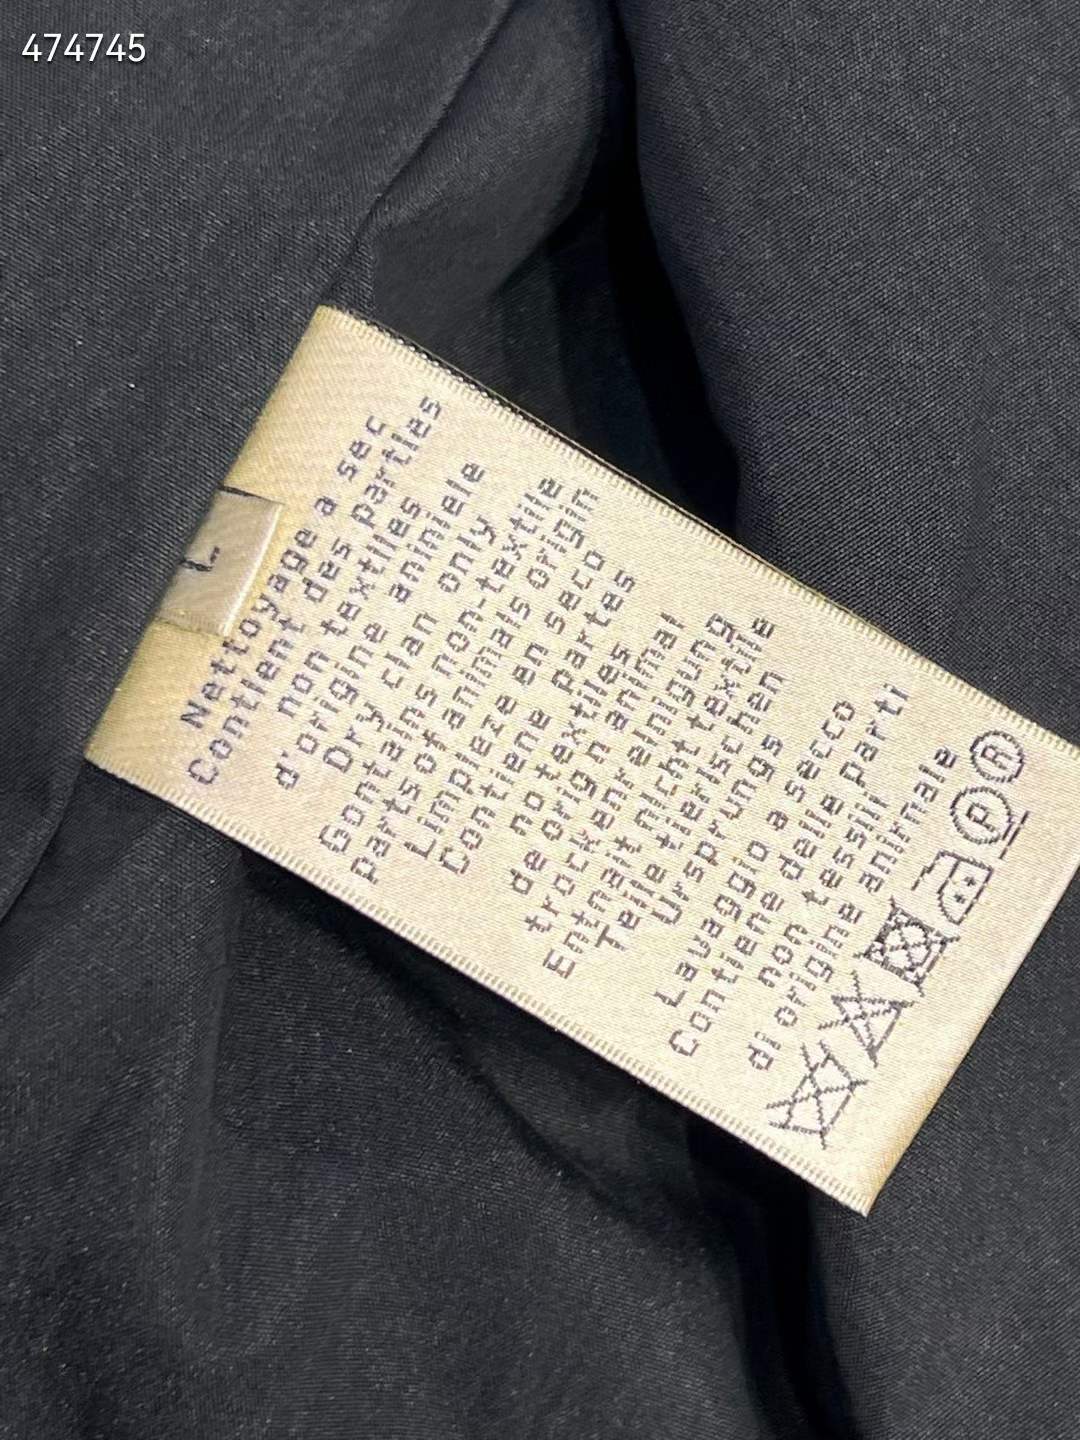 474745
L
Nettoyage a sec
Contient des parties
non textiles
d'origine aniniale
Dry clan only
Gontains non-textile
partsofanimals origin
Limpieze en seco
Contiene partes
no textiles
de orign animal
trockenrelnigung
Entnait nicht textile
Teile tierischen
Ursprungs
Lavaggio a secco
Contiene delle parti
non tessili
di origine anirnale
P A